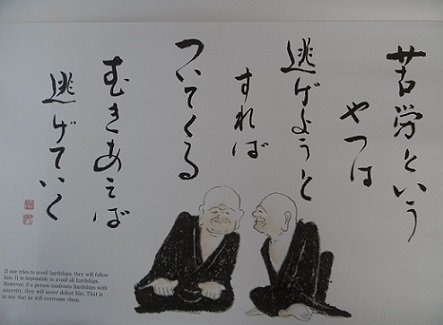 苦労という
やつは
逃げようと
すれば
ついてくる
むきあえば
逃げていく
If one tries to avoid hardships, they will follow
him. It is impossible to avoid all hardships.
However, if a person confronts hardships with
sincerity, they will never defeat him. That is
to say that he will overcome them.